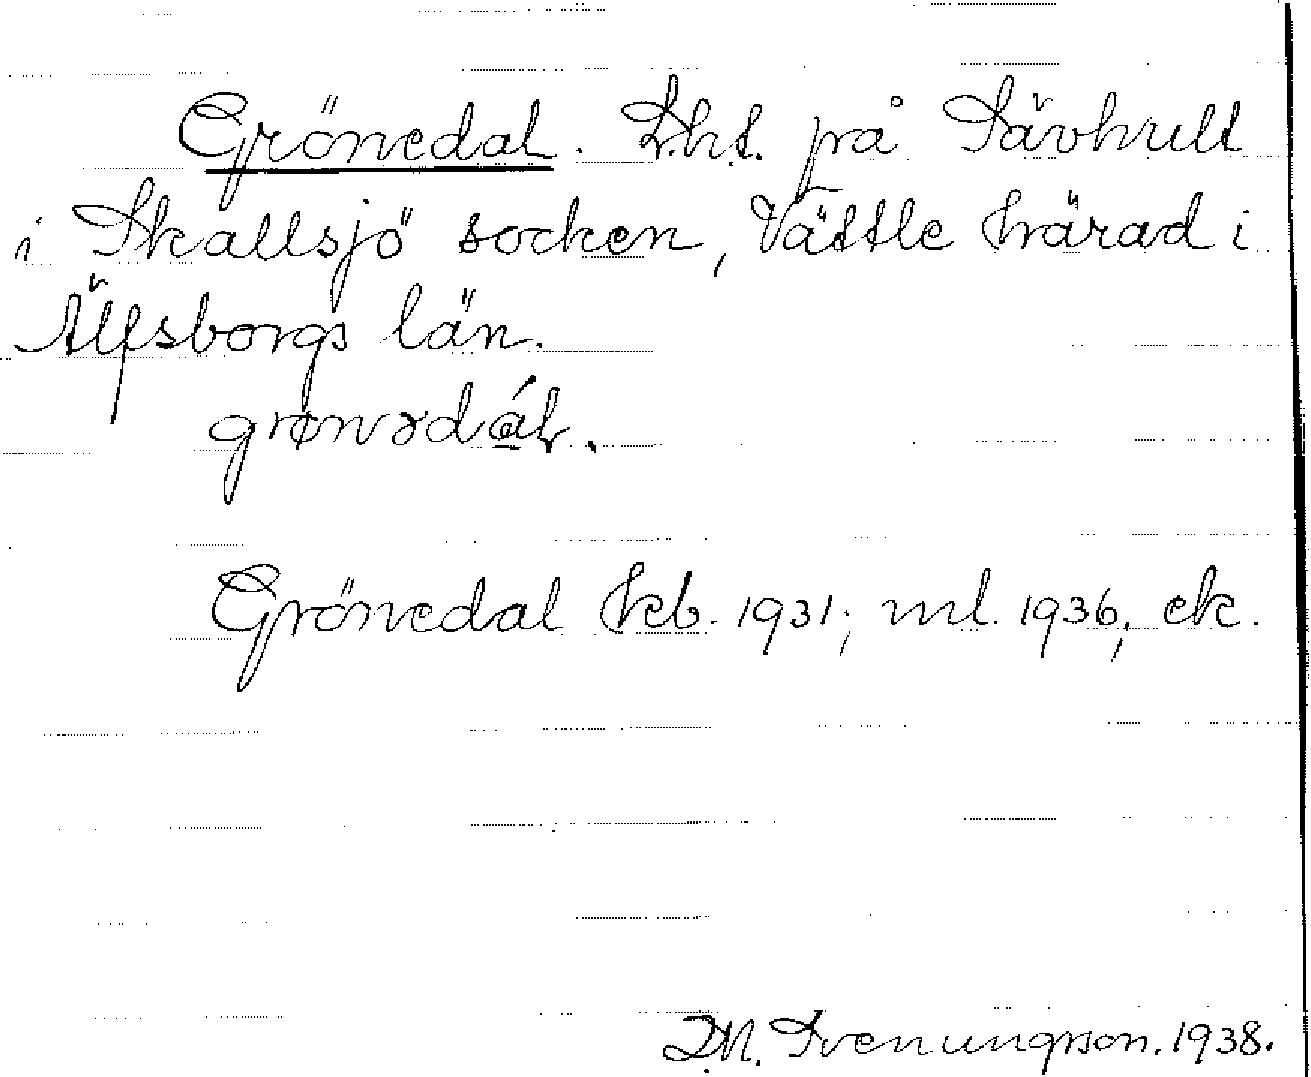 Grönedal. Lht. på Sävhult
i Skallsjö socken, Vättle härad i
Älfsborgs län.
grønədál.
Grönedal hkb. 1931; ml. 1936; ek.
D.M. Svenungsson. 1938.